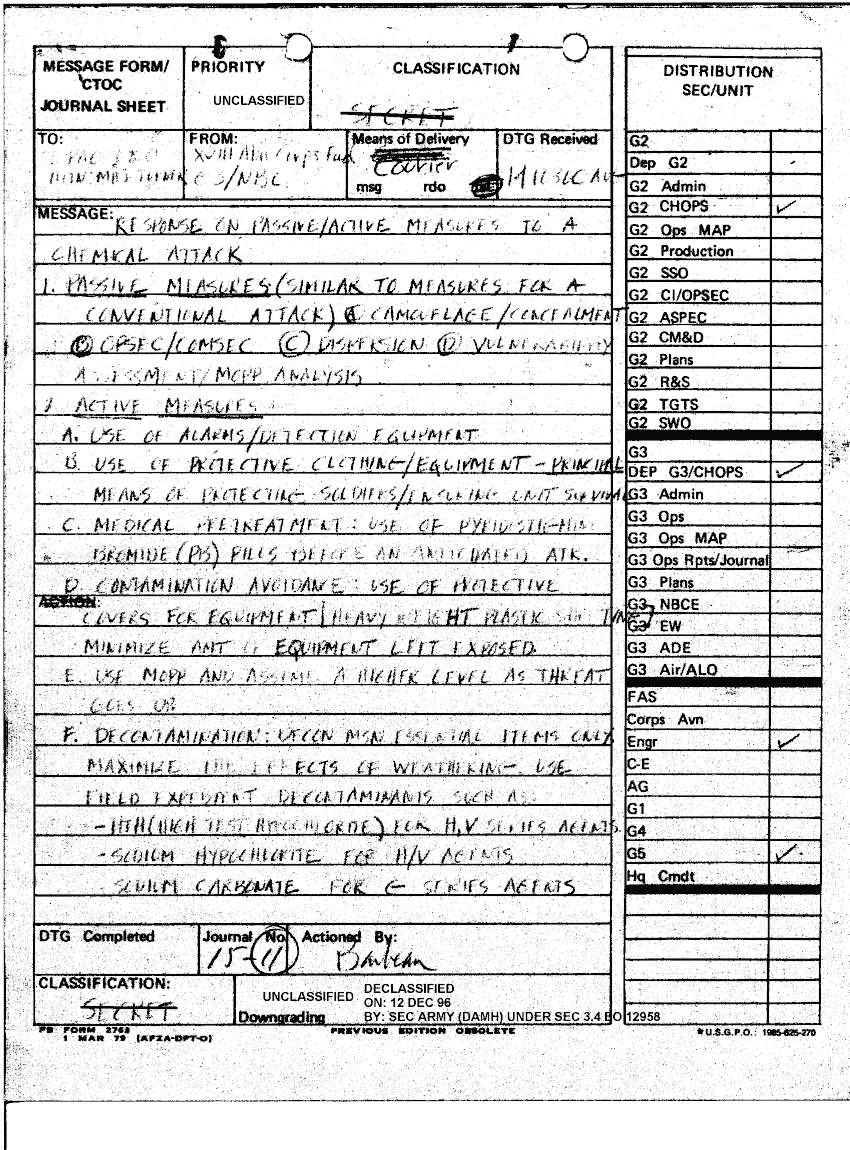 MESSAGE FORM/
CTOC
JOURNAL SHEET
PRIORITY
UNCLASSIFIED
CLASSIFICATION
SECRET
TO:
FROM:
XVIII Abn Corps Fwd
G3/NBC
Means of Delivery
Courier
msg rdo
DTG Received
MESSAGE:
RESPONSE ON PASSIVE/ACTIVE MEASURES TO A
CHEMICAL ATTACK
1. PASSIVE MEASURES (SIMILAR TO MEASURES FOR A
CONVENTIONAL ATTACK) CAMOUFLAGE/CONCEALMENT
(B) OPSEC/COMSEC (C) DISPERSION (D) VULNERABILITY
ASSESSMENT/MOPP ANALYSIS
ACTIVE MEASURES
A. USE OF ALARMS/DETECTION EQUIPMENT
B. USE OF PROTECTIVE CLOTHING/EQUIPMENT - PRINCIPAL
MEANS OF PROTECTING SOLDIERS/ENSURING UNIT SURVIVAL
C. MEDICAL PRETREATMENT: USE OF
BROMIDE (PB) PILLS BEFORE AN ANTICIPATED ATK.
D. CONTAMINATION AVOIDANCE: USE OF PROTECTIVE
ACTION:
COVERS FOR EQUIPMENT HEAVY WEIGHT PLASTIC
MINIMIZE AMT OF EQUIPMENT LEFT EXPOSED
E. USE MOPP AND ASSUME A HIGHER LEVEL AS THREAT
GOES UP
F. DECONTAMINATION: DECON MSN ESSENTIAL ITEMS ONLY
MAXIMIZE THE EFFECTS OF WEATHERING. USE
FIELD EXPEDIENT DECONTAMINANTS SUCH AS:
- HTH (HIGH TEST HYPOCHLORITE) FOR H,V SERIES AGENTS.
- SODIUM HYPOCHLORITE FOR H/V AGENTS
- SODIUM CARBONATE FOR G- SERIES AGENTS
DTG Completed
Journal No.
15-11
Actioned By:
CLASSIFICATION:
SECRET
UNCLASSIFIED
Downgrading
DECLASSIFIED
ON: 12 DEC 96
BY: SEC ARMY (DAMH) UNDER SEC 3.4 EO 12958
FB FORM 2762
1 MAR 79 (AFZA-DPT-O)
PREVIOUS EDITION OBSOLETE
DISTRIBUTION
SEC/UNIT
G2
Dep G2
G2 Admin
G2 CHOPS
G2 Ops MAP
G2 Production
G2 SSO
G2 CI/OPSEC
G2 ASPEC
G2 CM&D
G2 Plans
G2 R&S
G2 TGTS
G2 SWO
G3
DEP G3/CHOPS
G3 Admin
G3 Ops
G3 Ops MAP
G3 Ops Rpts/Journal
G3 Plans
G3 NBCE
G3 EW
G3 ADE
G3 Air/ALO
FAS
Corps Avn
Engr
C-E
AG
G1
G4
G5
Hq Cmdt
*U.S.G.P.O.: 1985-625-270